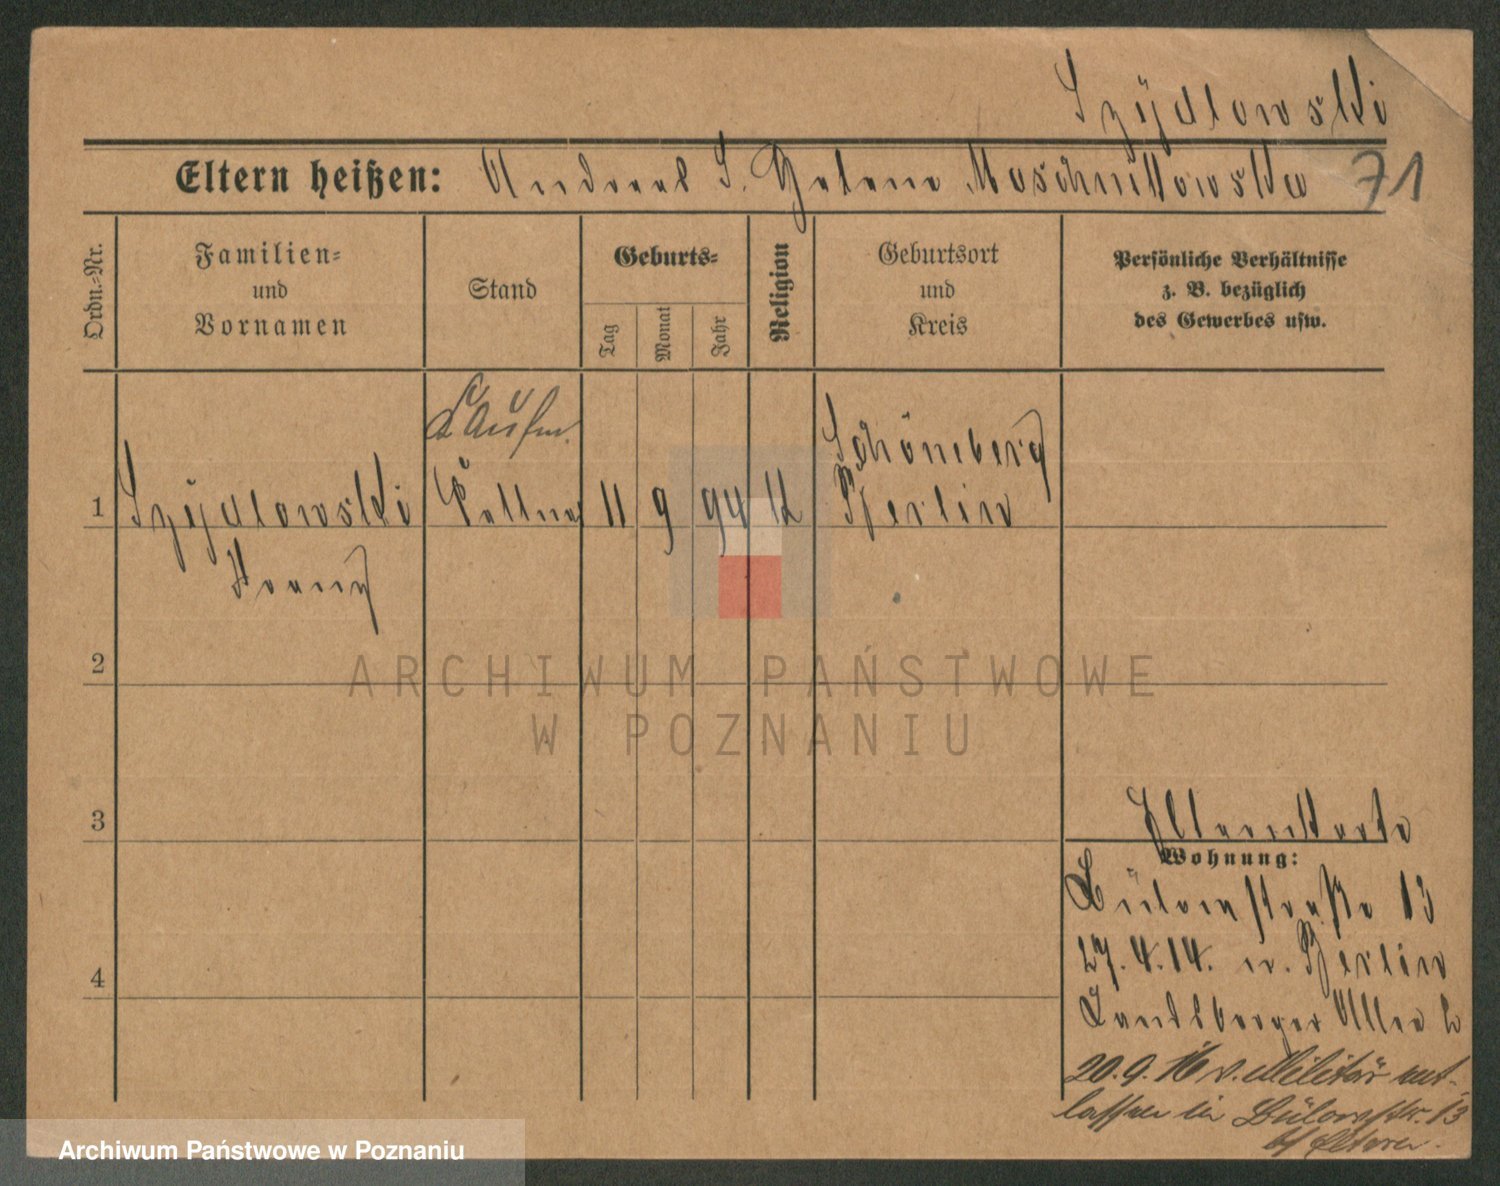 Szÿdlowski
Eltern heißen: Andreas S. Helene Moschnikowska 71
Ordn.-Nr.
Familien-
und
Vornamen
Stand
Geburts-
Tag
Monat
Jahr
Religion
Geburtsort
und
Kreis
Persönliche Verhältnisse
z. B. bezüglich
des Gewerbes usw.
Kaufm.
1 Szÿdlowski Kellner 11 9 94 k Schöneberg
Berlin
Franz
2
ARCHIWUM PAŃSTWOWE
W POZNANIU
3
Elternkarte
Wohnung:
Bülowstraße 13
27.4.14. n. Berlin
4
Landsberger Allee 2
20.9.16 v. Militär ent-
lassen in Bülowstr. 13
b/ Eltern.
Archiwum Państwowe w Poznaniu